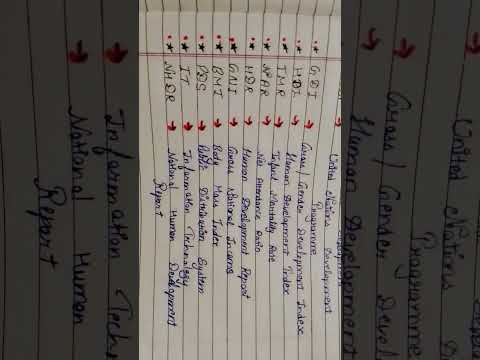 United Nations Development
Programme
* GDI → Gross/ Gender Development Index
* HDI → Human Development Index
* IMR → Infant Mortality Rate
* NAR → Net Attendance Ratio
* HDR → Human Development Report
* GNI → Gross National Income
* BMI → Body Mass Index
* PDS → Public Distribution System
* IT → Information Technology
* NHDR → National Human Development
Report
United Nations
Programme
→ Gross/ Gender Devel
→ Human Development
→ Information Techn
→ National Human
Report